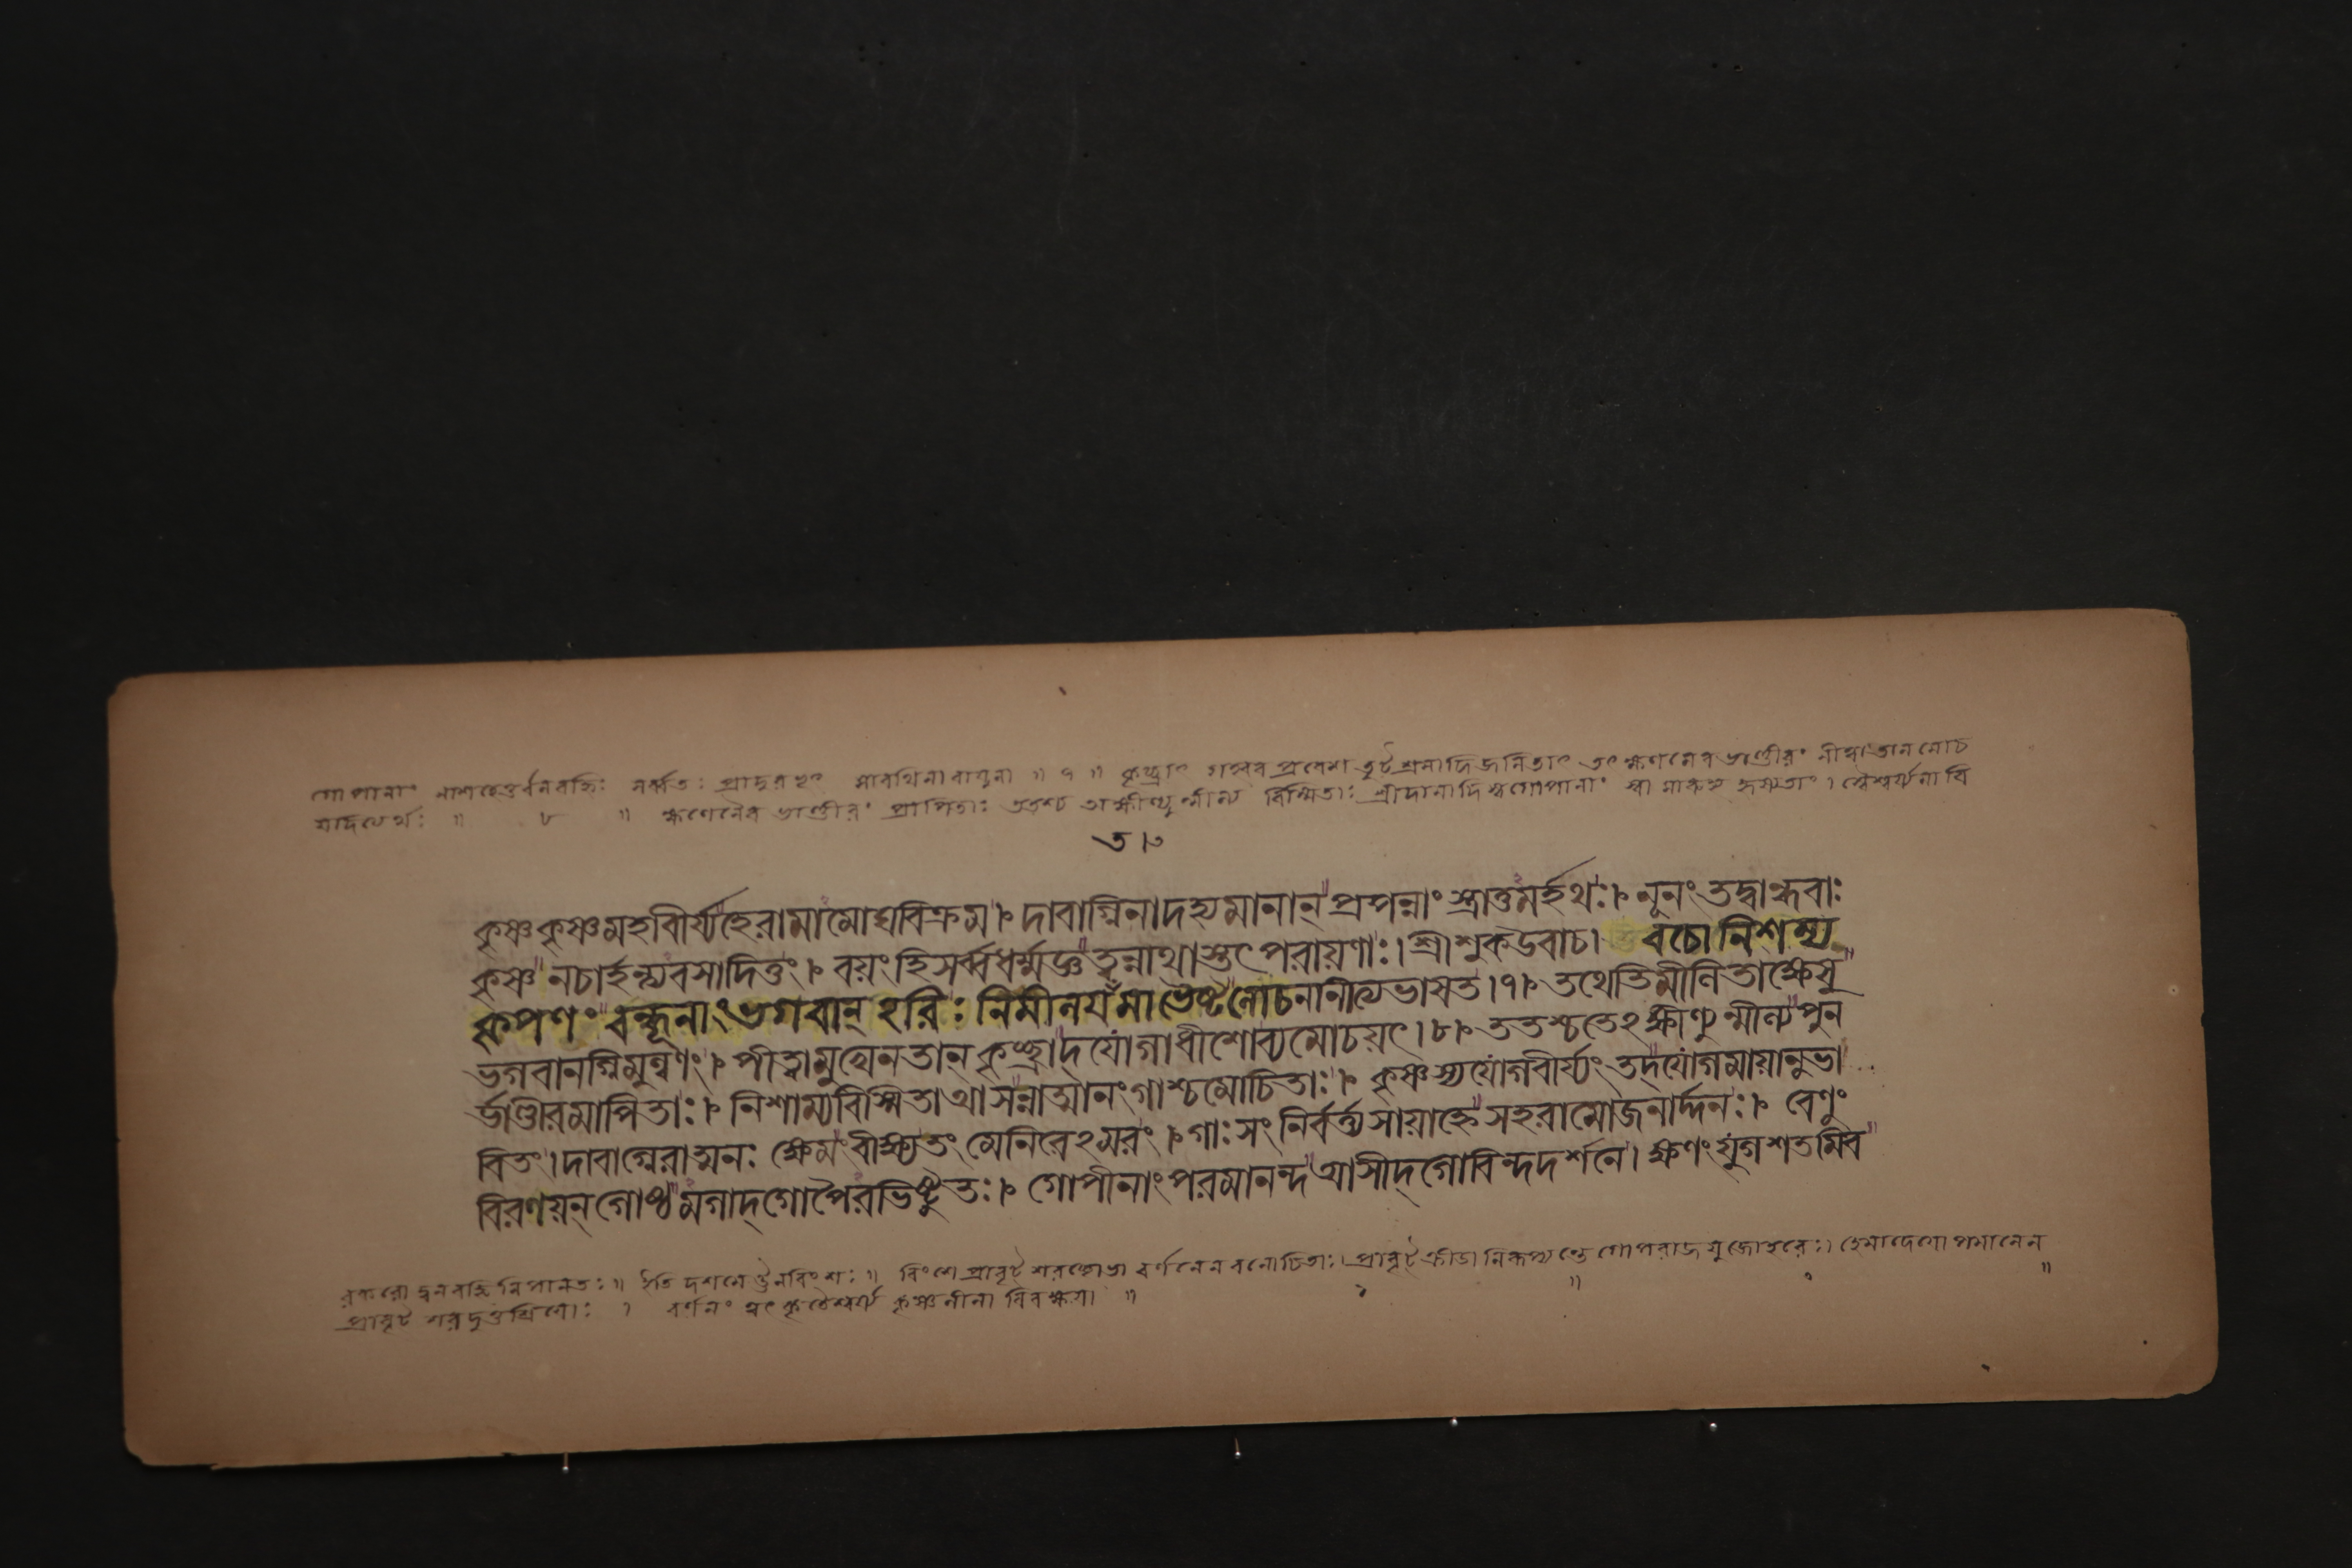 গোপানাং নাশহেতুর্বনবহ্নিঃ সর্ব্বতঃ প্রাদুরভূৎ সারথিনা বায়ুনা ॥ ৭ ॥ কৃচ্ছ্রাৎ প্রবেশ তৃট্ শ্রমাদিজনিতাৎ তৎ ক্ষণমেব ভাণ্ডীরং
যাদিত্যর্থঃ ॥ ৮ ॥ ক্ষণেনৈব ভাণ্ডীরং প্রাপিতাঃ ততশ্চ অক্ষীণ্যুন্মীল্য বিস্মিতাঃ শ্রীদামাদি গোপানাং
ত।৩
কৃষ্ণ কৃষ্ণ মহাবীর্য্য হে রামামোঘবিক্রম।৹ দাবাগ্নিনা দহ্যমানান্ প্রপন্নাং স্ত্রাতুমর্হথঃ।৹ নূনং তদ্বান্ধবাঃ
কৃষ্ণ নচার্হন্ত্যবসাদিতুং।৹ বয়ং হি সর্ব্বধর্ম্মজ্ঞ ত্বন্নাথাস্তৎপরায়ণাঃ। শ্রীশুকউবাচ। বচো নিশম্য
কৃপণং বন্ধূনাং ভগবান্ হরিঃ নিমীলয়ঁ মা ভৈষ্ট লোচনানীত্যভাষত।৭।৹ তথেতি মীলিতাক্ষেষু
ভগবানগ্নিমুল্বণং।৹ পীত্বা মুখেন তান্ কৃচ্ছ্রাদ্ যোগাধীশো ব্যমোচয়ৎ।৮।৹ ততশ্চ তেঽক্ষীণ্যুন্মীল্য পুন
র্ভাণ্ডীরমাপিতাঃ।৹ নিশাম্য বিস্মিতা আসন্নাত্মানং গাশ্চ মোচিতাঃ।৹ কৃষ্ণস্য যোগবীর্য্যং তদ্ যোগমায়ানুভা
বিতং। দাবাগ্নেরাত্মনঃ ক্ষেমং বীক্ষ্য তং মেনিরেঽমরং।৹ গাঃ সংনির্বর্ত্ত্য সায়াহ্নে সহরামো জনার্দ্দনঃ।৹ বেণুং
বিরণয়ন্ গোষ্ঠমগাদ্ গোপৈরভিষ্টুতঃ।৹ গোপীনাং পরমানন্দ আসীদ্ গোবিন্দদর্শনে। ক্ষণং যুগশতমিব
বহ্নি নিপানতঃ ॥ ইতি দশমে ঊনবিংশঃ ॥ বিংশে প্রাবৃট্ শরচ্ছোভা বর্ণনেন প্রাবৃট্ ক্রীডা নিরূপ্যন্তে গোপরাম যুজোহরেঃ।
প্রাবৃট্ শরদৃতুশ্রিয়োঃ । বর্ণনং কৃষ্ণলীলা বিবক্ষয়া ॥